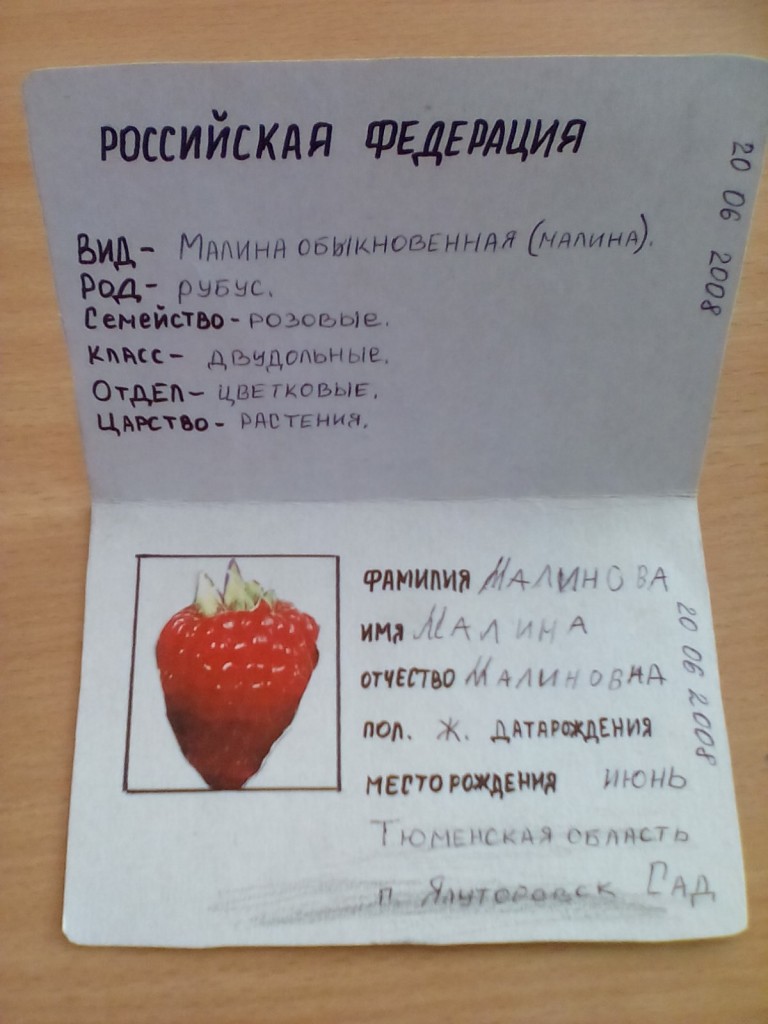 РОССИЙСКАЯ ФЕДЕРАЦИЯ
20 06 2008
ВИД- МАЛИНА ОБЫКНОВЕННАЯ (МАЛИНА).
РОД- РУБУС.
СЕМЕЙСТВО- РОЗОВЫЕ.
КЛАСС- ДВУДОЛЬНЫЕ.
ОТДЕЛ- ЦВЕТКОВЫЕ.
ЦАРСТВО- РАСТЕНИЯ.
ФАМИЛИЯ МАЛИНОВА
ИМЯ МАЛИНА
ОТЧЕСТВО МАЛИНОВНА
ПОЛ. Ж. ДАТАРОЖДЕНИЯ
МЕСТО РОЖДЕНИЯ ИЮНЬ
ТЮМЕНСКАЯ ОБЛАСТЬ
П. ЯЛУТОРОВСК САД
20 06 2008